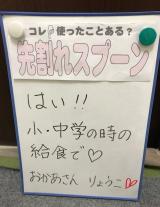 コレ使ったことある？
先割れスプーン
はい!!
小・中学の時の
給食で♡
おかあさん りょうこ♡